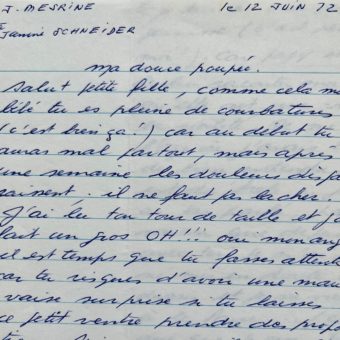 J. MESRINE le 12 JUIN 72
à
Janine SCHNEIDER
ma douce poupée.
Salut petite fille, comme cela ma
bébé tu es pleine de courbatures
(c'est bien ça!) car au début tu
auras mal partout, mais après
une semaine les douleurs dispa
raissent. il ne faut pas lacher.
J'ai lu ton tour de taille et j'
fait un gros OH!!! oui mon ang
il est temps que tu fasses attenti
car tu risques d'avoir une mau
vaise surprise si tu laisses
ce petit ventre prendre des propo